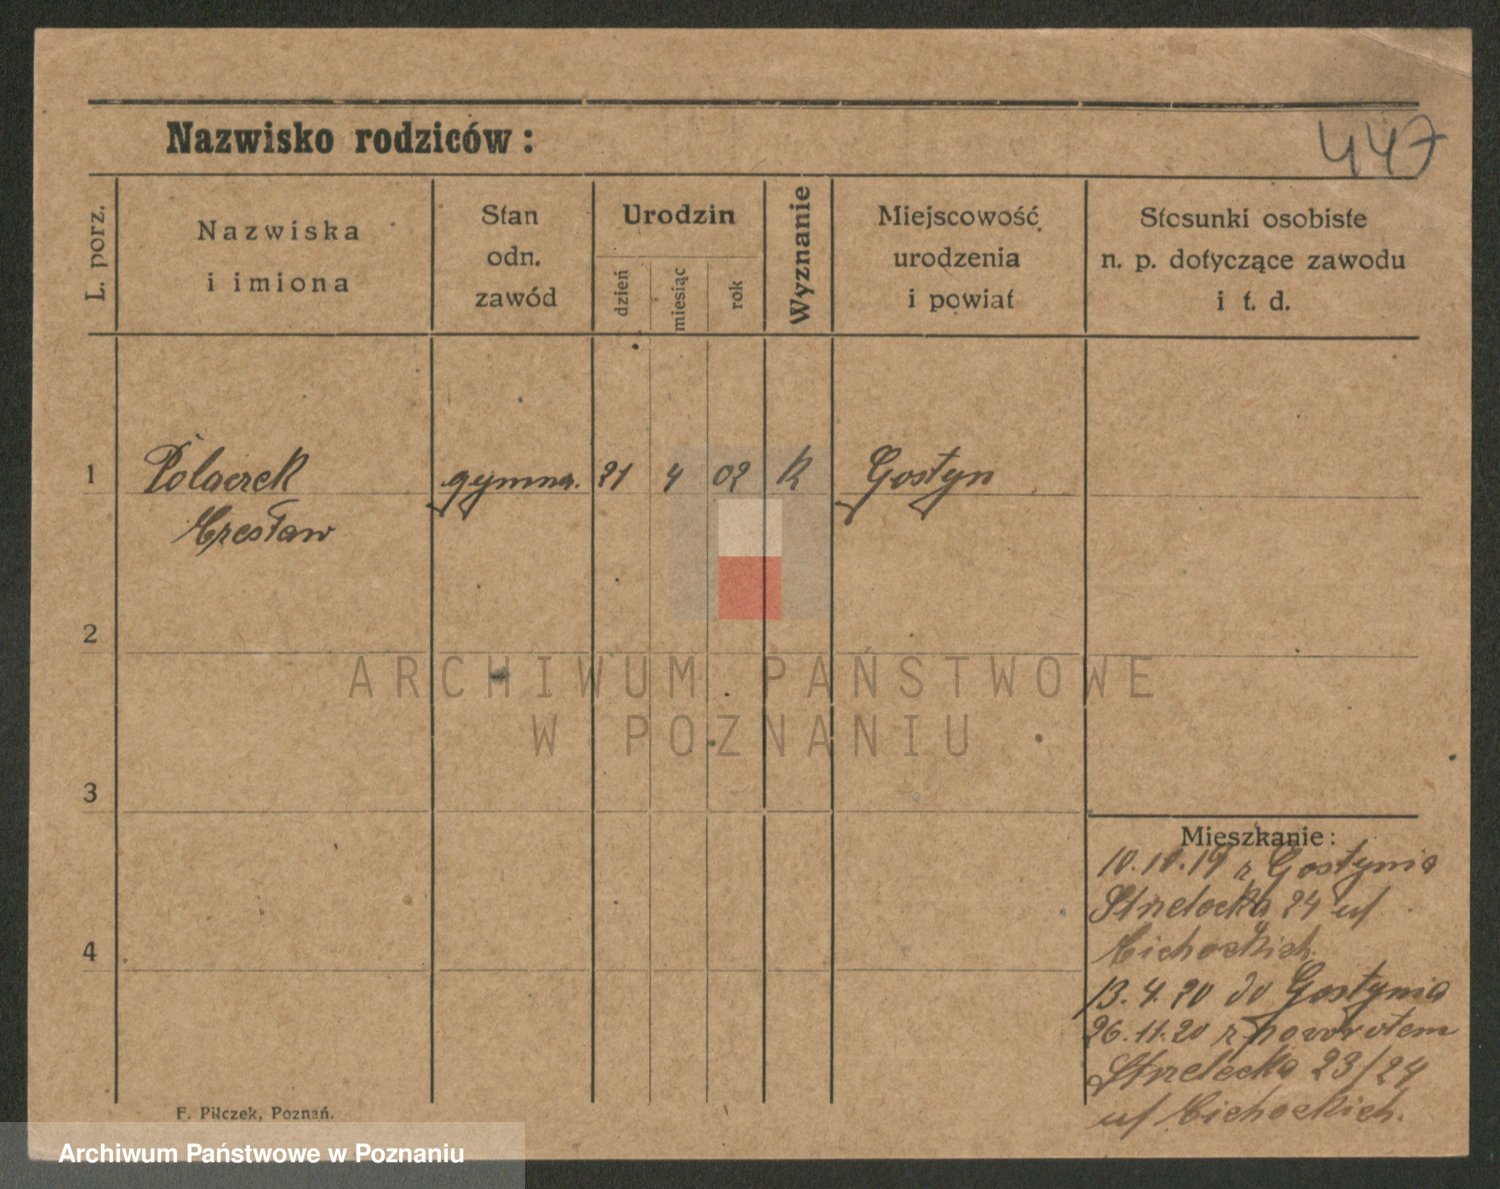 447
Nazwisko rodziców:
L. porz.
Nazwiska
i imiona
Stan
odn.
zawód
Urodzin
dzień
miesiąc
rok
Wyznanie
Miejscowość
urodzenia
i powiat
Stosunki osobiste
n. p. dotyczące zawodu
i t. d.
1 Polaczek gymna. 21 4 02 K Gostyn
Czesław
2
ARCHIWUM PAŃSTWOWE
W POZNANIU
3
Mieszkanie:
10.10.19 z Gostynia
Strzelecka 24 u/
Cichockich.
4
13.4.20 do Gostynia
26.11.20 z powrotem
Strzelecka 23/24
u/ Cichockich.
F. Pilczek, Poznań.
Archiwum Państwowe w Poznaniu